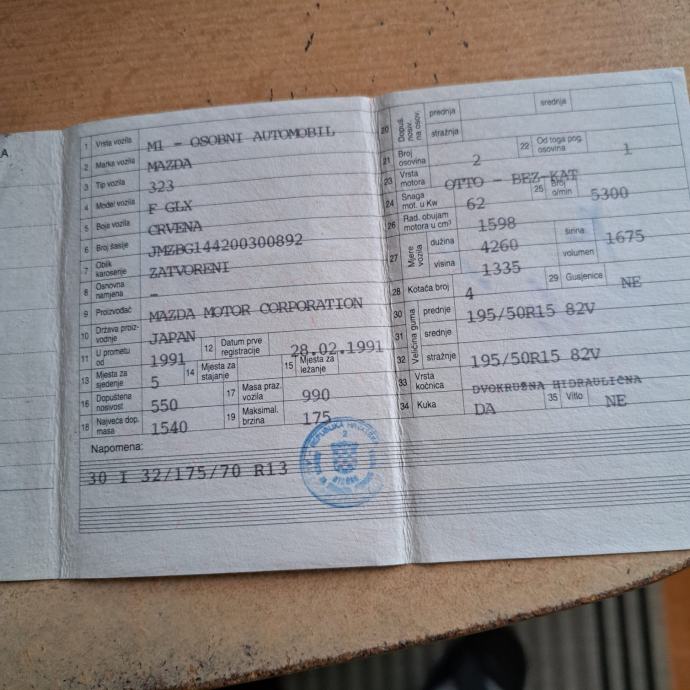 A
1 Vrsta vozila M1 - OSOBNI AUTOMOBIL
2 Marka vozila MAZDA
3 Tip vozila 323
4 Model vozila F GLX
5 Boja vozila CRVENA
6 Broj šasije JMZBG144200300892
7 Oblik karoserije ZATVORENI
8 Osnovna namjena -
9 Proizvođač MAZDA MOTOR CORPORATION
10 Država proiz-vodnje JAPAN
11 U prometu od 1991 12 Datum prve registracije 28.02.1991
13 Mjesta za sjedenje 5 14 Mjesta za stajanje 15 Mjesta za ležanje
16 Dopuštena nosivost 550 17 Masa praz. vozila 990
18 Najveća dop. masa 1540 19 Maksimal. brzina 175
Napomena:
30 I 32/175/70 R13
REPUBLIKA HRVATSKA
2
20 Dopuš. nosiv. na osov. prednja srednja
stražnja
21 Broj osovina 2 22 Od toga pog. osovina 1
23 Vrsta motora OTTO - BEZ-KAT
24 Snaga mot. u Kw 62 25 Broj o/min 5300
26 Rad. obujam motora u cm³ 1598
27 Mjere vozila dužina 4260 širina 1675
visina 1335 volumen
28 Kotača broj 4 29 Gusjenice NE
30 Veličina guma prednje 195/50R15 82V
31 srednje
32 stražnje 195/50R15 82V
33 Vrsta kočnica DVOKRUŽNA HIDRAULIČNA
34 Kuka DA 35 Vitlo NE